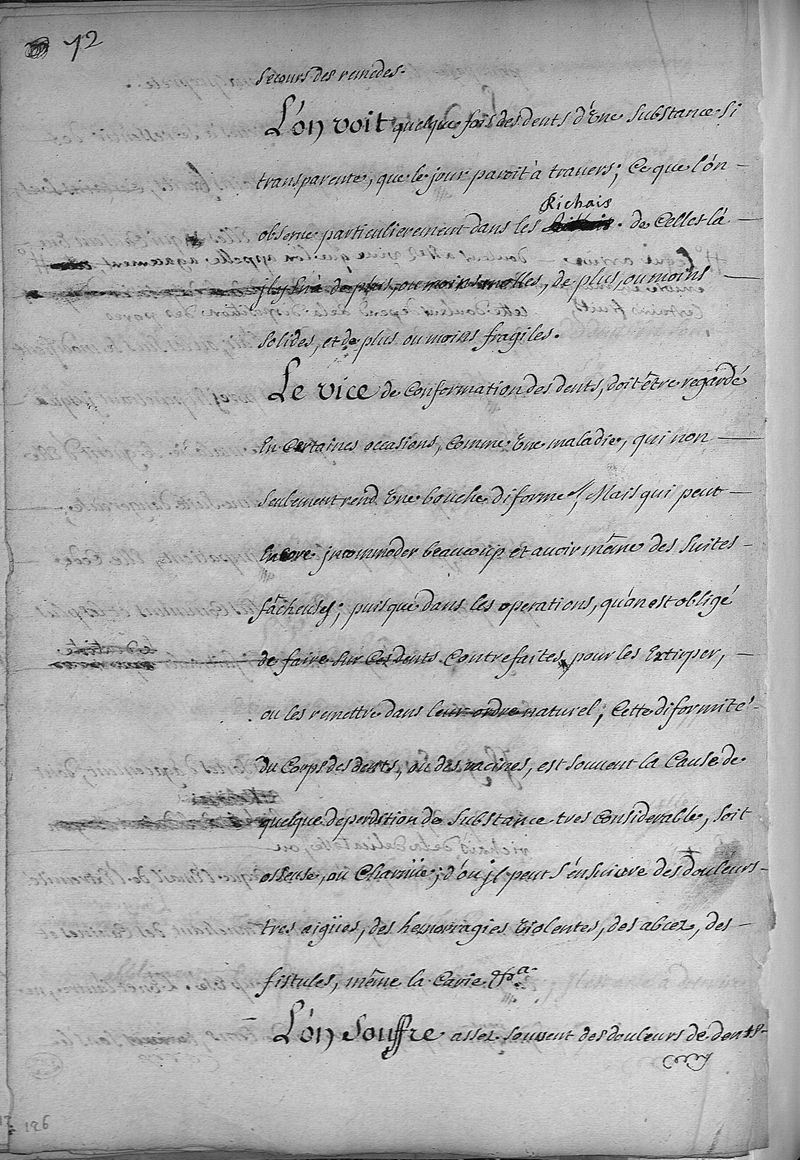 72
Secours des remedes.
L'on voit quelque fois des dents d'Une Substance Si
transparente, que le jour paroit à travers; Ce que l'on
Richais
observe particulierement dans les . de Celles là
jl s'en de plus, ou moins molles, de plus, ou moins
Solides, et de plus ou moins fragiles.
Le vice de Conformation des dents, doit être regardé
En Certaines occasions, Comme Une maladie, qui non
Seulement rend Une bouche diforme, Mais qui peut
Encore jncommoder beaucoup et avoir même des Suites
fâcheuses; puisque dans les operations, qu'on est obligé
de faire Sur Ces dents Contrefaites, pour les Extirper,
ou les remettre dans leur ordre naturel; Cette diformité
du Corps des dents, ou des racines, est Souvent la Cause de
quelque deperdition de Substance tres Considerable, Soit
osseuse, ou Charnüe; d'ou jl peut S'ensuivre des douleurs
tres aigües, des hemorragies Violentes, des abcez, des
fistules, même la Carie &ca.
L'on Souffre assez Souvent des douleurs de dents
126